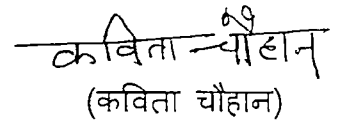 कविता चौहान
(कविता चौहान)